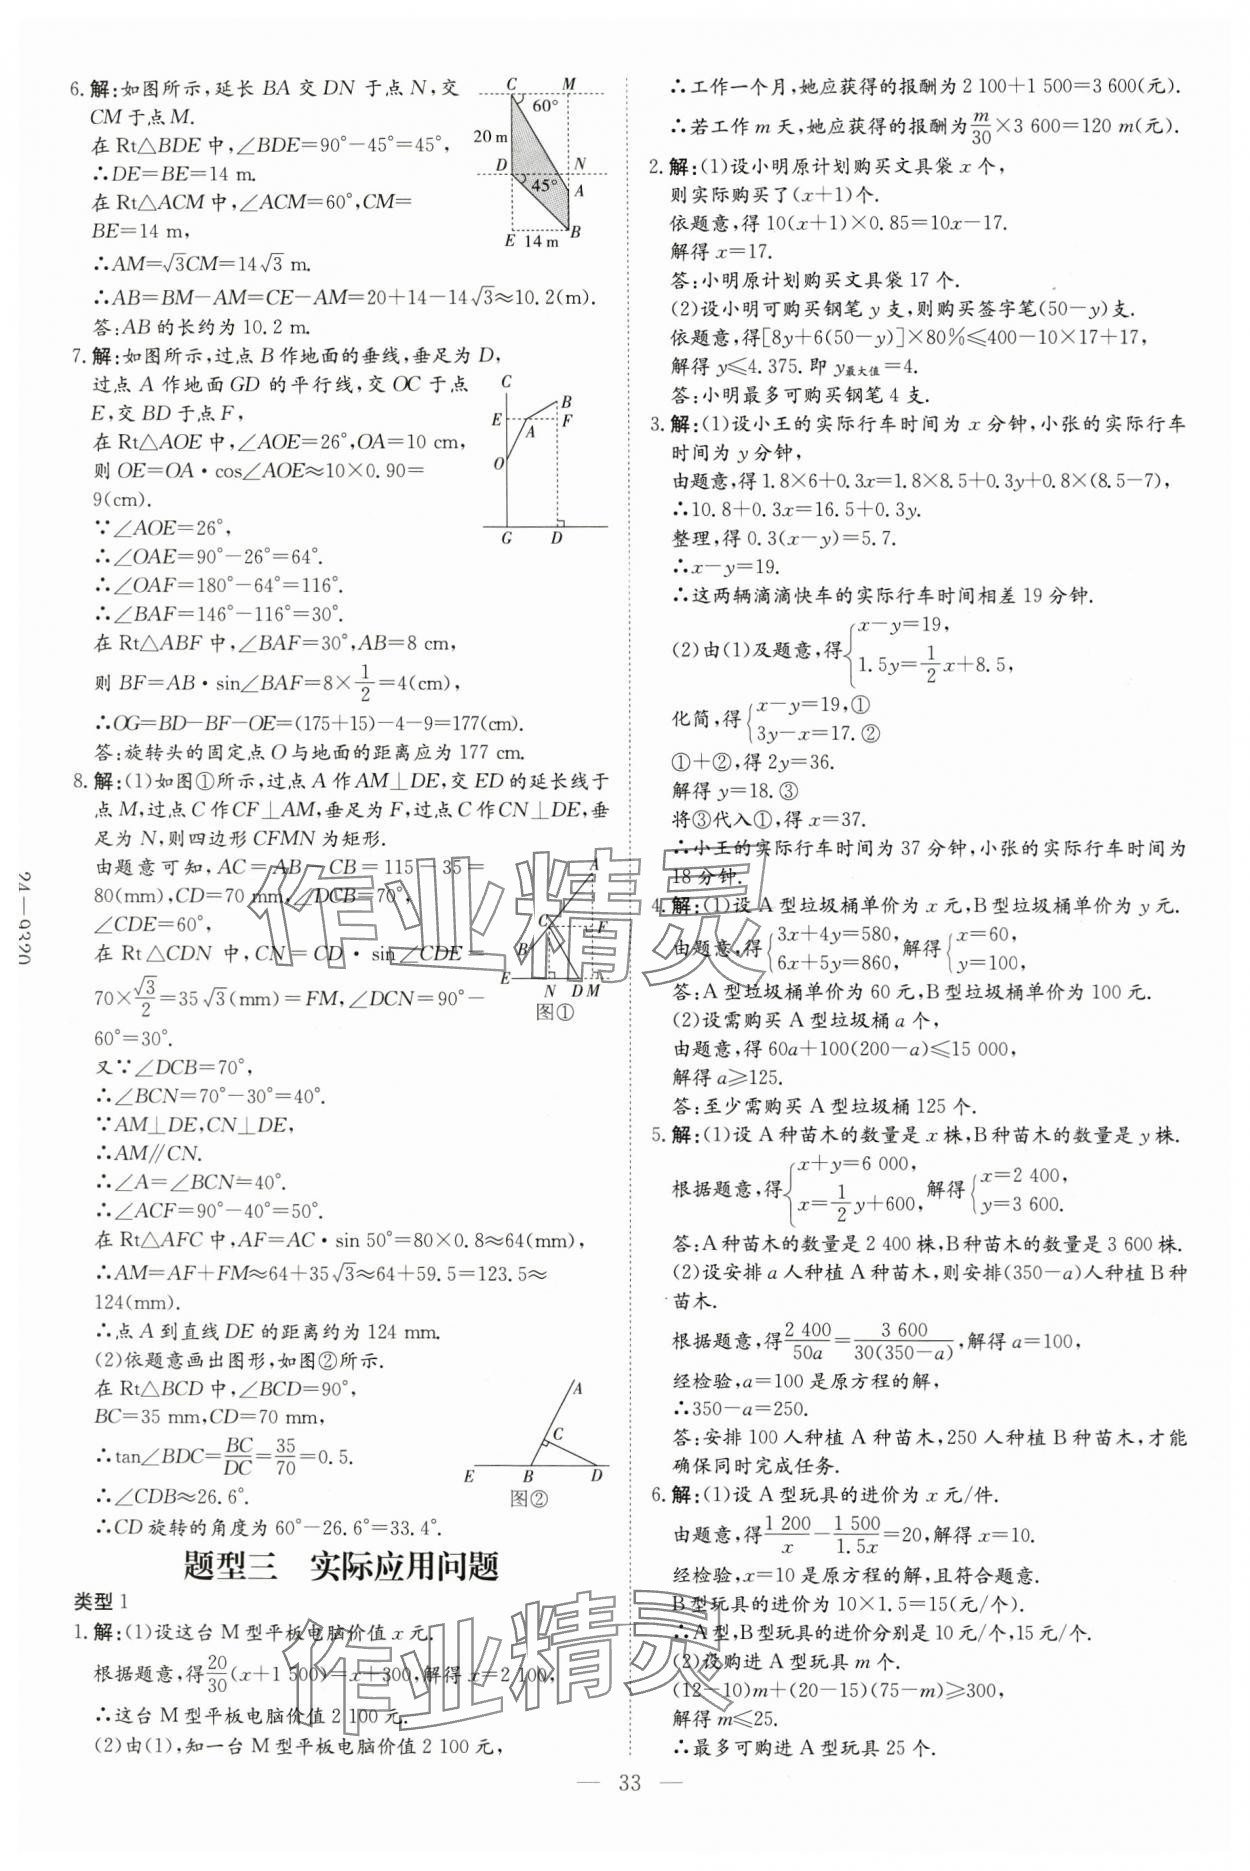 6. 解:如图所示,延长 BA 交 DN 于点 N,交
CM 于点 M.
在 Rt△BDE 中,∠BDE=90°-45°=45°,
∴DE=BE=14 m.
在 Rt△ACM 中,∠ACM=60°,CM=
BE=14 m,
∴AM=√3CM=14√3 m.
∴AB=BM-AM=CE-AM=20+14-14√3≈10.2(m).
答:AB 的长约为 10.2 m.
C M
60°
20 m
D N
45° A
E 14 m B
7. 解:如图所示,过点 B 作地面的垂线,垂足为 D,
过点 A 作地面 GD 的平行线,交 OC 于点
E,交 BD 于点 F,
在 Rt△AOE 中,∠AOE=26°,OA=10 cm,
则 OE=OA·cos∠AOE≈10×0.90=
9(cm).
∵∠AOE=26°,
∴∠OAE=90°-26°=64°.
∴∠OAF=180°-64°=116°.
∴∠BAF=146°-116°=30°.
在 Rt△ABF 中,∠BAF=30°,AB=8 cm,
则 BF=AB·sin∠BAF=8×1/2=4(cm),
∴OG=BD-BF-OE=(175+15)-4-9=177(cm).
答:旋转头的固定点 O 与地面的距离应为 177 cm.
C
B
E A F
O
G D
8. 解:(1)如图①所示,过点 A 作 AM⊥DE,交 ED 的延长线于
点 M,过点 C 作 CF⊥AM,垂足为 F,过点 C 作 CN⊥DE,垂
足为 N,则四边形 CFMN 为矩形.
由题意可知,AC=AB-CB=115-35=
80(mm),CD=70 mm,∠DCB=70°,
∠CDE=60°,
在 Rt△CDN 中,CN=CD·sin∠CDE=
70×√3/2=35√3(mm)=FM,∠DCN=90°-
60°=30°.
又∵∠DCB=70°,
∴∠BCN=70°-30°=40°.
∵AM⊥DE,CN⊥DE,
∴AM∥CN.
∴∠A=∠BCN=40°.
∴∠ACF=90°-40°=50°.
在 Rt△AFC 中,AF=AC·sin 50°=80×0.8≈64(mm),
∴AM=AF+FM≈64+35√3≈64+59.5=123.5≈
124(mm).
∴点 A 到直线 DE 的距离约为 124 mm.
(2)依题意画出图形,如图②所示.
在 Rt△BCD 中,∠BCD=90°,
BC=35 mm,CD=70 mm,
∴tan∠BDC=BC/DC=35/70=0.5.
∴∠CDB≈26.6°.
∴CD 旋转的角度为 60°-26.6°=33.4°.
A
C F
B
E N D M
图①
A
C
E B D
图②
题型三 实际应用问题
类型 1
1. 解:(1)设这台 M 型平板电脑价值 x 元.
根据题意,得20/30(x+1 500)=x+300,解得 x=2 100,
∴这台 M 型平板电脑价值 2 100 元.
(2)由(1),知一台 M 型平板电脑价值 2 100 元,
∴工作一个月,她应获得的报酬为 2 100+1 500=3 600(元).
∴若工作 m 天,她应获得的报酬为m/30×3 600=120 m(元).
2. 解:(1)设小明原计划购买文具袋 x 个,
则实际购买了(x+1)个.
依题意,得 10(x+1)×0.85=10x-17.
解得 x=17.
答:小明原计划购买文具袋 17 个.
(2)设小明可购买钢笔 y 支,则购买签字笔(50-y)支.
依题意,得[8y+6(50-y)]×80%≤400-10×17+17,
解得 y≤4.375.即 y最大值=4.
答:小明最多可购买钢笔 4 支.
3. 解:(1)设小王的实际行车时间为 x 分钟,小张的实际行车
时间为 y 分钟,
由题意,得 1.8×6+0.3x=1.8×8.5+0.3y+0.8×(8.5-7),
∴10.8+0.3x=16.5+0.3y.
整理,得 0.3(x-y)=5.7.
∴x-y=19.
∴这两辆滴滴快车的实际行车时间相差 19 分钟.
(2)由(1)及题意,得{x-y=19,
1.5y=1/2x+8.5,
化简,得{x-y=19,①
3y-x=17.②
①+②,得 2y=36.
解得 y=18.③
将③代入①,得 x=37.
∴小王的实际行车时间为 37 分钟,小张的实际行车时间为
18 分钟.
4. 解:(1)设 A 型垃圾桶单价为 x 元,B 型垃圾桶单价为 y 元.
由题意,得{3x+4y=580, 6x+5y=860,解得{x=60, y=100,
答:A 型垃圾桶单价为 60 元,B 型垃圾桶单价为 100 元.
(2)设需购买 A 型垃圾桶 a 个,
由题意,得 60a+100(200-a)≤15 000,
解得 a≥125.
答:至少需购买 A 型垃圾桶 125 个.
5. 解:(1)设 A 种苗木的数量是 x 株,B 种苗木的数量是 y 株.
根据题意,得{x+y=6 000, x=1/2y+600,解得{x=2 400, y=3 600.
答:A 种苗木的数量是 2 400 株,B 种苗木的数量是 3 600 株.
(2)设安排 a 人种植 A 种苗木,则安排(350-a)人种植 B 种
苗木.
根据题意,得2 400/50a=3 600/30(350-a),解得 a=100,
经检验,a=100 是原方程的解,
∴350-a=250.
答:安排 100 人种植 A 种苗木,250 人种植 B 种苗木,才能
确保同时完成任务.
6. 解:(1)设 A 型玩具的进价为 x 元/件.
由题意,得1 200/x-1 500/1.5x=20,解得 x=10.
经检验,x=10 是原方程的解,且符合题意.
B 型玩具的进价为 10×1.5=15(元/个).
∴A 型,B 型玩具的进价分别是 10 元/个,15 元/个.
(2)设购进 A 型玩具 m 个.
(12-10)m+(20-15)(75-m)≥300,
解得 m≤25.
∴最多可购进 A 型玩具 25 个.
— 33 —
24—9320
作业精灵
作业精灵